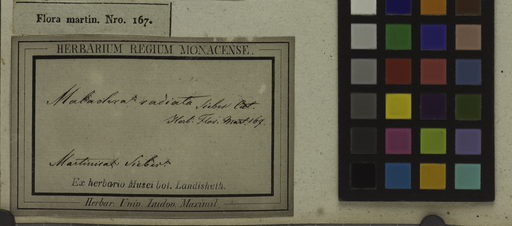 Flora martin. Nro. 167.
HERBARIUM REGIUM MONACENSE.
Malachra radiata Sieber Cat.
Herb. Flor. Mart. 169.
Martinica Sieber
Ex herbario Musei bot. Landishuth.
Herbar. Univ. Ludov. Maximil.